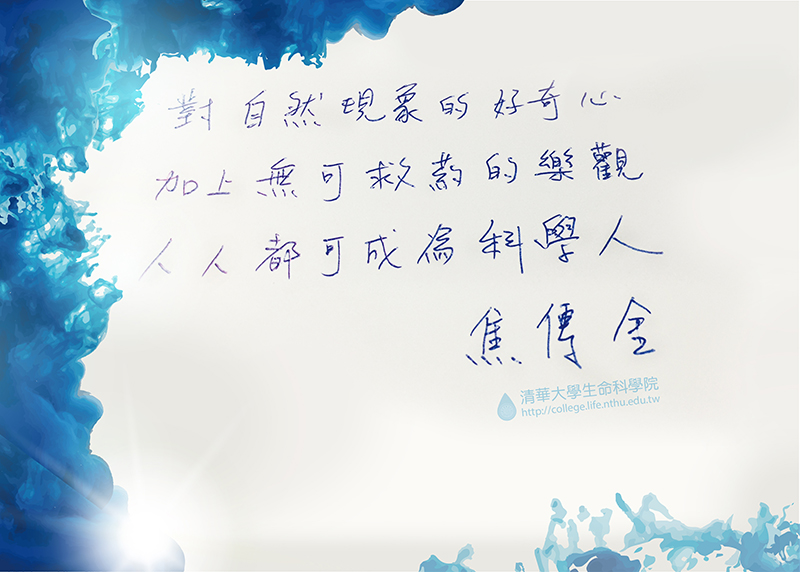 對自然現象的好奇心
加上無可救葯的樂觀
人人都可成為科學人
焦傳金
清華大學生命科學院
http://college.life.nthu.edu.tw